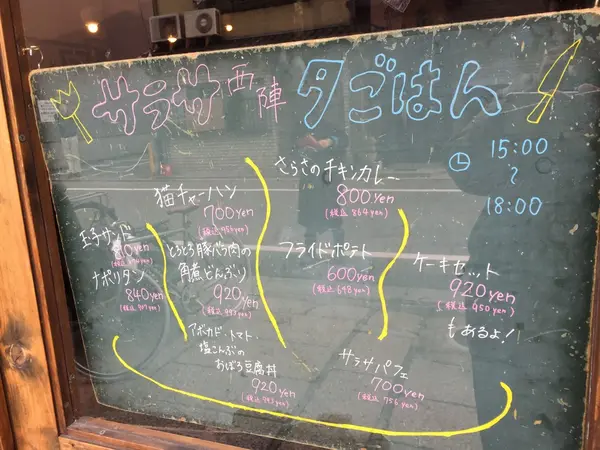 サラサ西陣 夕ごはん
15:00
〜
18:00
玉子サンド
ナポリタン
840yen
(税込 907yen)
猫チャーハン
700yen
(税込 756yen)
とろとろ豚バラ肉の
角煮どんぶり
920yen
(税込 993yen)
アボカド・トマト・
塩こんぶの
おぼろ豆腐丼
920yen
(税込 993yen)
さらさのチキンカレー
800yen
(税込 864yen)
フライドポテト
600yen
(税込 648yen)
サラサパフェ
700yen
(税込 756yen)
ケーキセット
920yen
(税込 950yen)
もあるよ!